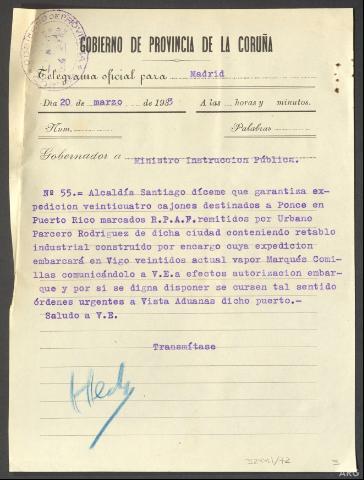 GOBIERNO DE PROVINCIA DE LA CORUÑA
Telegrama oficial para Madrid
Día 20 de marzo de 1933 A las horas y minutos.
Núm. Palabras
Gobernador a Ministro Instruccion Pública.
Nº 55.= Alcaldía Santiago díceme que garantiza ex-
pedicion veinticuatro cajones destinados a Ponce en
Puerto Rico marcados R.P.A.F.remitidos por Urbano
Parcero Rodriguez de dicha ciudad conteniendo retablo
industrial construido por encargo cuya expedicion
embarcará en Vigo veintidos actual vapor Marqués Comi-
llas comunicándolo a V.E.a efectos autorizacion embar-
que y por si se digna disponer se cursen tal sentido
órdenes urgentes a Vista Aduanas dicho puerto.-
Saludo a V.E.
Transmítase
3
ARG